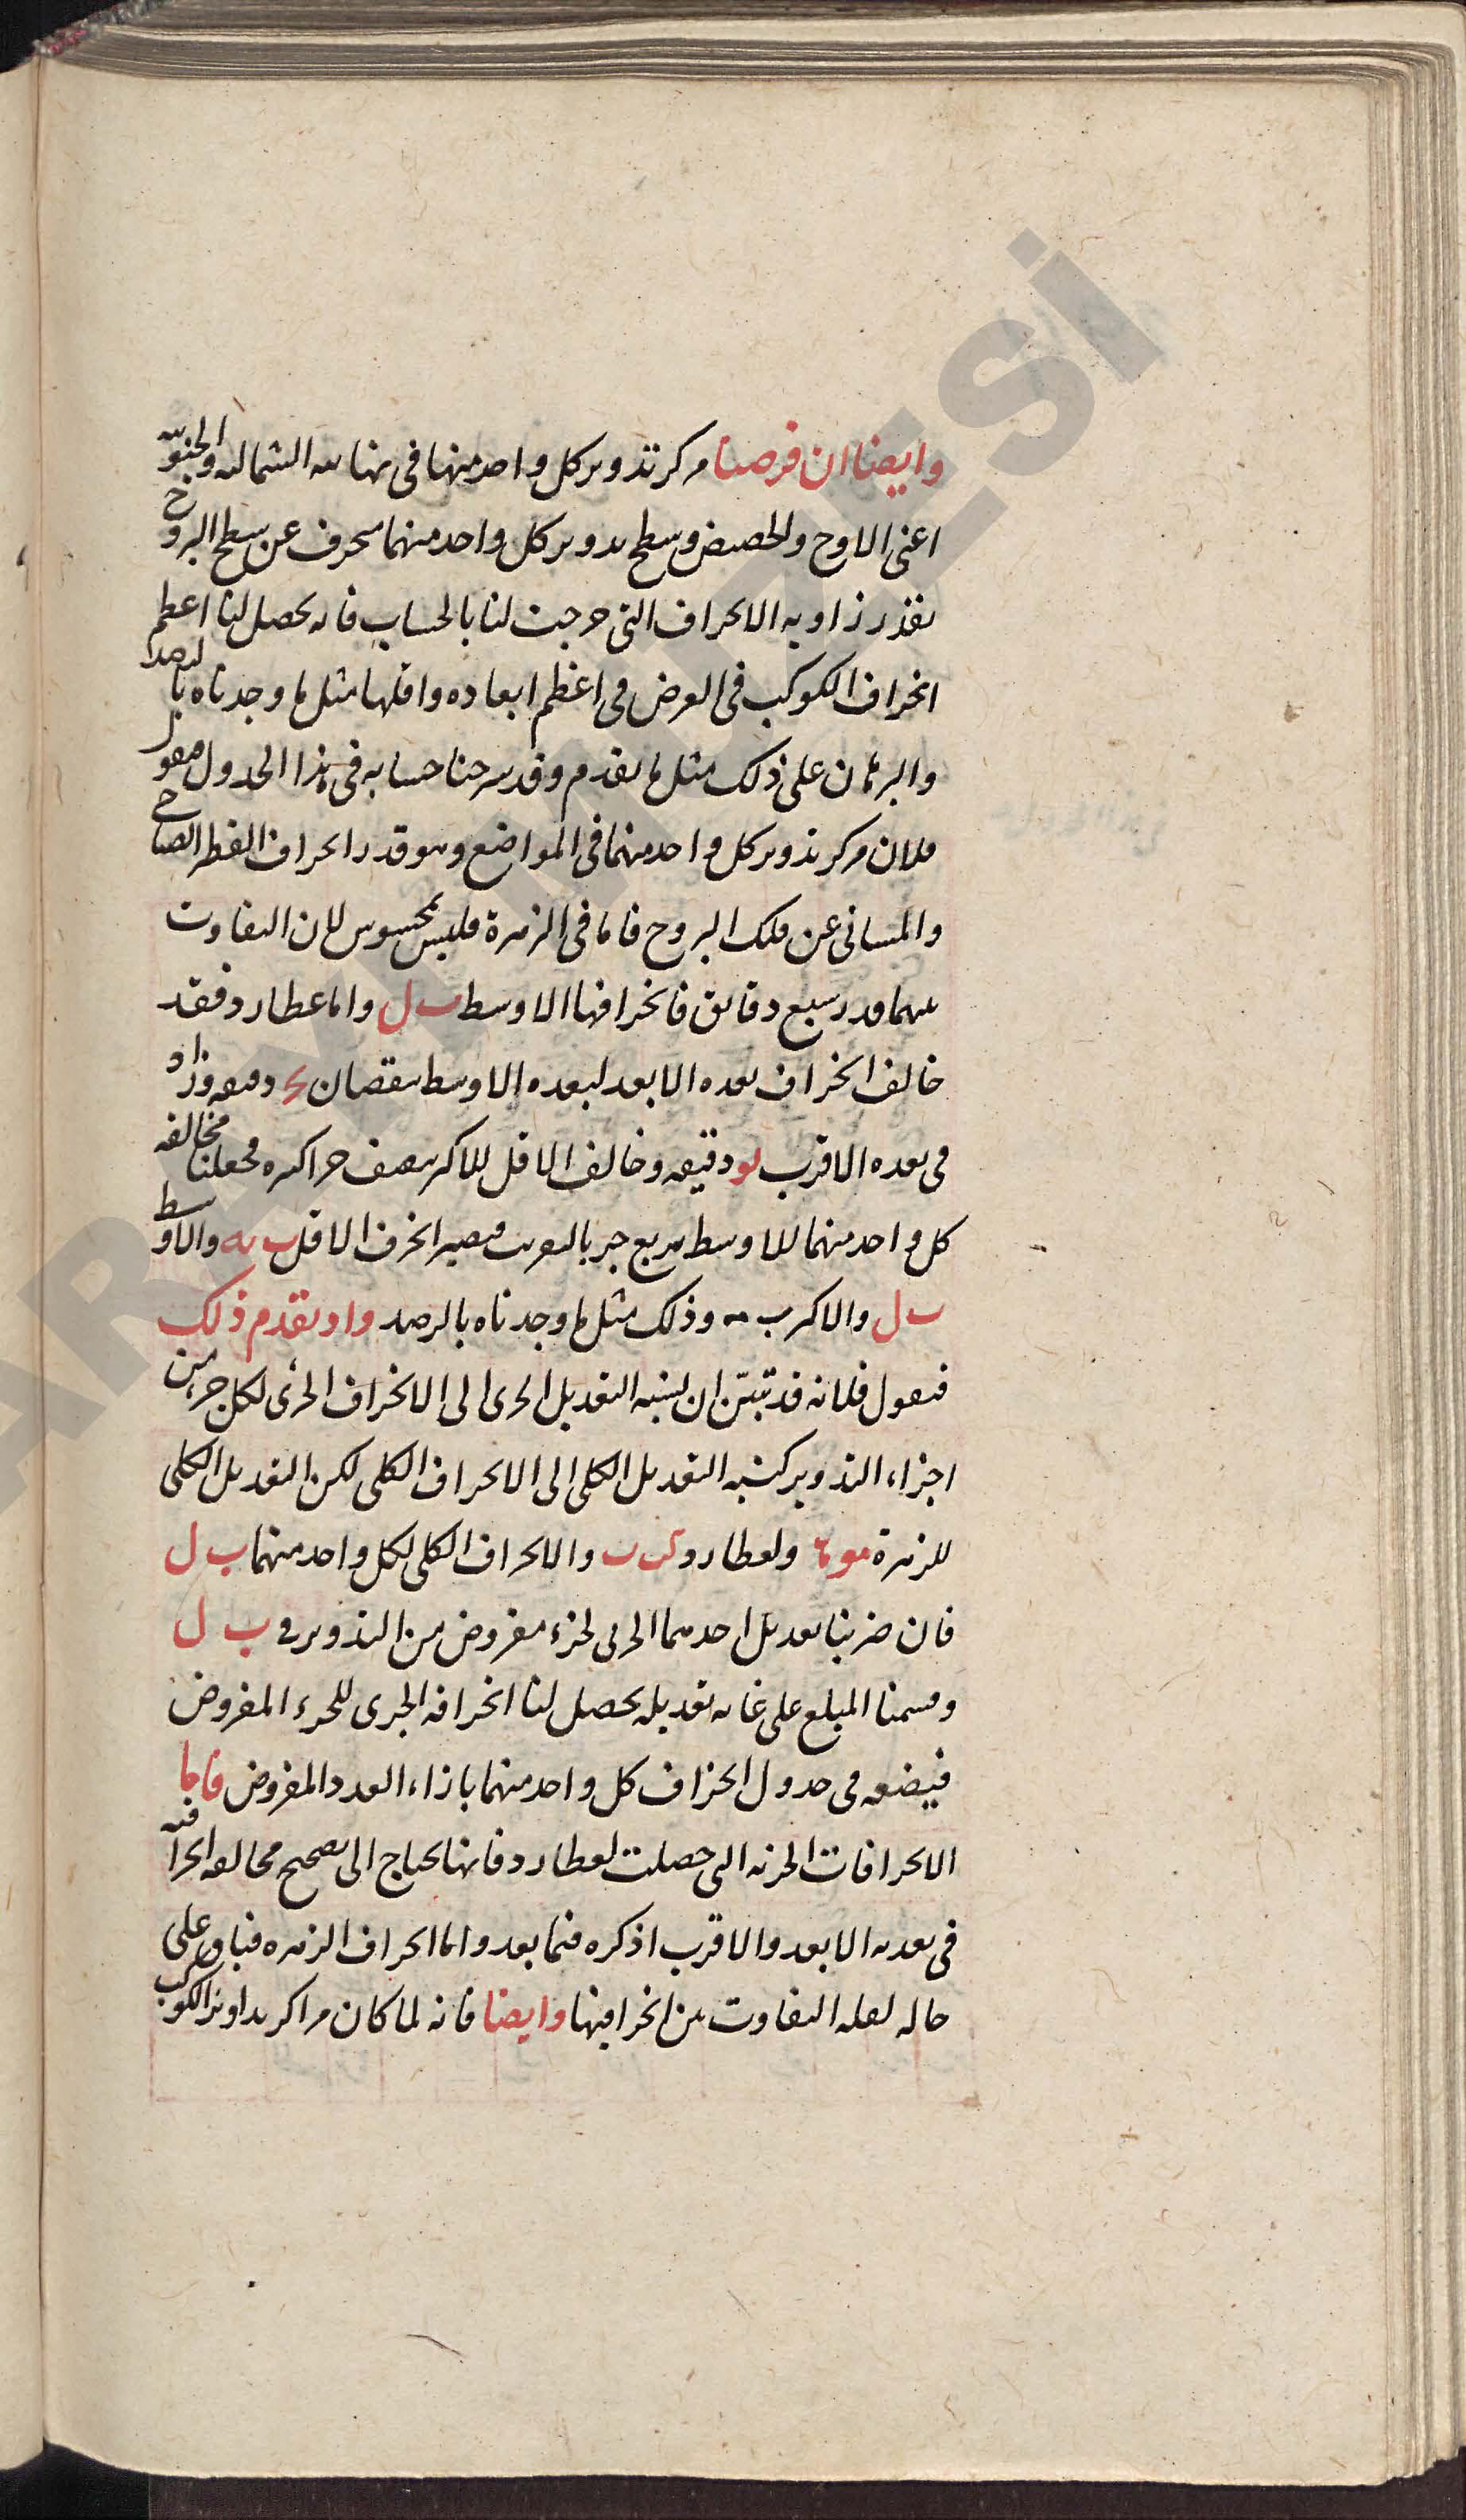 وايضا ان فرضنا مركز تدوير كل واحد منهما في نهايته الشماليه والجنوبيه
اعني الاوج والحضيض وسطح تدوير كل واحد منهما منحرف عن سطح البروج
بقدر زاويه الانحراف التي خرجت لنا بالحساب فانه يحصل لنا اعظم
انحراف الكوكب في العرض في اعظم ابعاده واقلها مثل ما وجدناه بالرصد
والبرهان على ذلك مثل ما تقدم وقد شرحنا حسابه في هذا الجدول
فلان مركز تدوير كل واحد منهما في المواضع وهو قدر انحراف القطر الصباحي
والمسائي عن فلك البروج فاما في الزهرة فليس بمحسوس لان التفاوت
بينهما قدر سبع دقايق فانحرافها الاوسط ب ل واما عطارد فقد
خالف انحراف بعده الابعد لبعده الاوسط بنقصان دقيقه وزاد
في بعده الاقرب دقيقه وخالف الاقل للاكثر بنصف جزا كثره فجعلنا مخالفه
كل واحد منهما للاوسط بربع جزء بالتقريب فيصير انحراف الاقل ب يه والاوسط
ب ل والاكثر ب مه وذلك مثل ما وجدناه بالرصد واذ تقدم ذلك
فنقول فلانه قد تبين ان نسبه التعديل الجزئي الى الانحراف الجزئي لكل جزء من
اجزاء التدوير كنسبه التعديل الكلي الى الانحراف الكلي لكن التعديل الكلي
للزهرة ولعطارد والانحراف الكلي لكل واحد منهما ب ل
فان ضربنا تعديل احدهما الجزئي لجزء مفروض من التدوير في ب ل
وقسمنا المبلغ على غايه تعديله يحصل لنا انحرافه الجزئي للجزء المفروض
فيضعه في جدول انحراف كل واحد منهما بازاء العدد المفروض فاما
الانحرافات الجزئيه التي حصلت لعطارد فانها تحتاج الى تصحيح مخالفه انحرافه
في بعديه الابعد والاقرب اذكره فيما بعد واما انحراف الزهره فباق على
حاله لقله التفاوت بين انحرافيها وايضا فانه لما كان مراكز تداوير الكواكب